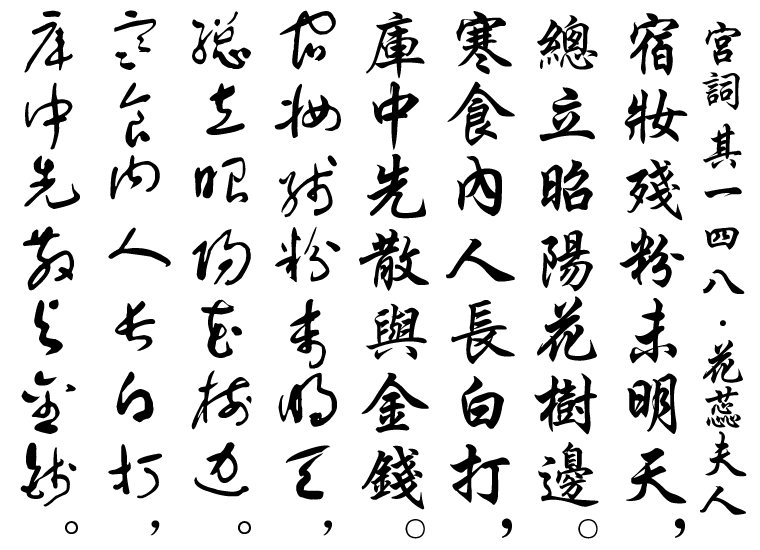 宮詞 其一四八・花蕊夫人
宿妝殘粉未明天，
總立昭陽花樹邊。
寒食內人長白打，
庫中先散與金錢。
宿妝殘粉未明天，
總立昭陽花樹邊。
寒食內人長白打，
庫中先散與金錢。